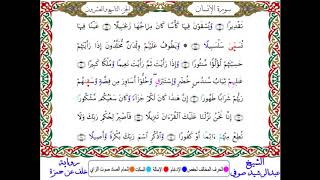 سورة الإنسان الجزء التاسع والعشرون
تَقْدِيرًا وَيُسْقَوْنَ فِيهَا كَأْسًا كَانَ مِزَاجُهَا زَنجَبِيلًا عَيْنًا فِيهَا
تُسَمَّىٰ سَلْسَبِيلًا وَيَطُوفُ عَلَيْهِمْ وِلْدَانٌ مُّخَلَّدُونَ إِذَا رَأَيْتَهُمْ
حَسِبْتَهُمْ لُؤْلُؤًا مَّنثُورًا وَإِذَا رَأَيْتَ ثَمَّ رَأَيْتَ نَعِيمًا وَمُلْكًا كَبِيرًا
عَٰلِيهِمْ ثِيَابُ سُندُسٍ خُضْرٍ وَإِسْتَبْرَقٍ وَحُلُّوٓا۟ أَسَاوِرَ مِن فِضَّةٍ وَسَقَىٰهُمْ
رَبُّهُمْ شَرَابًا طَهُورًا إِنَّ هَٰذَا كَانَ لَكُمْ جَزَآءً وَكَانَ سَعْيُكُم مَّشْكُورًا
إِنَّا نَحْنُ نَزَّلْنَا عَلَيْكَ ٱلْقُرْءَانَ تَنزِيلًا فَٱصْبِرْ لِحُكْمِ رَبِّكَ وَلَا
تُطِعْ مِنْهُمْ ءَاثِمًا أَوْ كَفُورًا وَٱذْكُرِ ٱسْمَ رَبِّكَ بُكْرَةً وَأَصِيلًا
الشيخ
عبدالرشيد صوفي
رواية
خلف عن حمزة